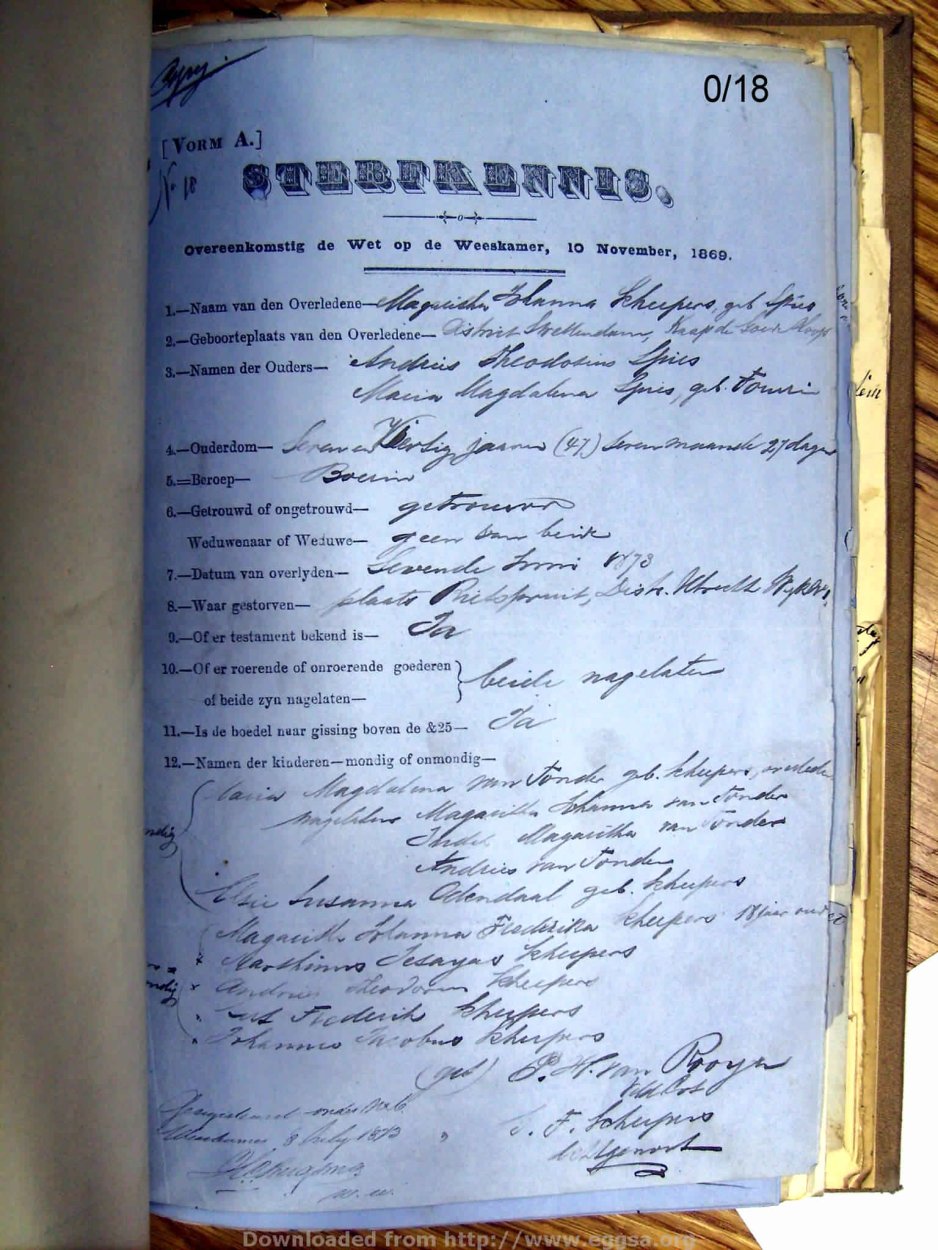 Copy.
0/18
[VORM A.]
No 18
STERFKENNIS.
Overeenkomstig de Wet op de Weeskamer, 10 November, 1869.
1.—Naam van den Overledene— Magaritha Johanna Scheepers, geb Spies
2.—Geboorteplaats van den Overledene— District Swellendam, Kaap de Goede Hoop
3.—Namen der Ouders— Andries Theodosius Spies
Maria Magdalena Spies, geb. Fourri
4.—Ouderdom— Seven en Veertig jaaren (47) seven maande 27 dage
5.—Beroep— Boerin
6.—Getrouwd of ongetrouwd— getrouwd
Weduwenaar of Weduwe— geen van beide
7.—Datum van overlyden— Sevende Juni 1873
8.—Waar gestorven— plaats Rietspruit, Distr. Utrecht Wyk
9.—Of er testament bekend is— Ja
10.—Of er roerende of onroerende goederen } beide nagelaten
of beide zyn nagelaten—
11.—Is de boedel naar gissing boven de &25— Ja
12.—Namen der kinderen—mondig of onmondig—
Maria Magdalena van Tonder geb. Scheepers, overlede
Magaritha Johanna van Tonder
Magaritha van Tonder
Andries van Tonder
Elsie Susanna Odendaal geb. Scheepers
Magarith Johanna Frederika Scheepers 18 jaar oud
Marthinus Jesayas Scheepers
Andries Theodorus Scheepers
Frederik Scheepers
Johannes Jacobus Scheepers
(get) P. H. van Rooyen
Veld Cort
F. Scheepers
Geregistreerd onder No 6
Weeskamer 8 July 1873
w. m.
Downloaded from http://www.eggsa.org